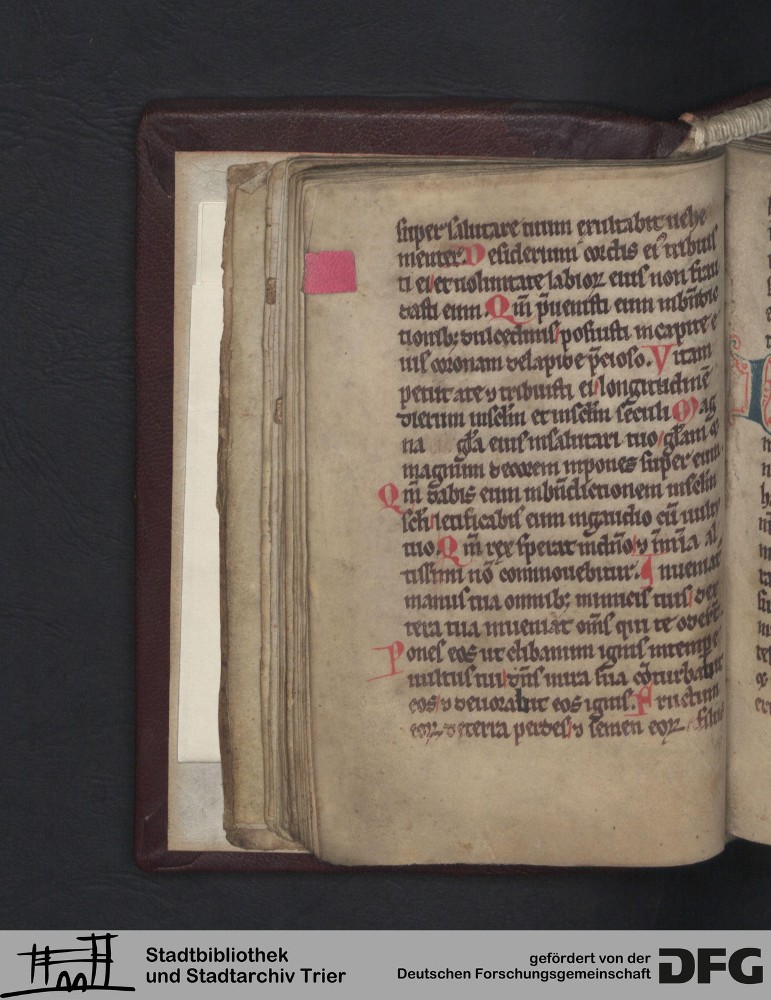 super salutare tuum exultabit vehe
menter. Desiderium cordis ei tribuis
ti ei et voluntate labioꝝ eius non frau
dasti eum. Qm̄ p̄uenisti eum in bn̄dic
tionibꝫ dulcedinis posuisti in capite e
ius coronam de lapide p̄cioso. Vitam
petiit a te ⁊ tribuisti ei longitudinē
dierum in sclm̄ et in sclm̄ seculi Mag
na gl̄a eius in salutari tuo gl̄am ⁊
magnum decorem inpones super eum.
Qm̄ dabis eum in bn̄dictionem in sclm̄
scl̄i letificabis eum in gaudio cū uultu
tuo. Qm̄ rex sperat in dn̄o ⁊ in mīa al
tissimi nō commouebitur. Inueniat
manus tua omnibꝫ inimicis tuis dex
tera tua inueniat om̄s qui te oder̄t
Pones eos ut clibanum ignis in tempe
uultus tui dn̄s in ira sua cōturbabit
eos ⁊ deuorabit eos ignis. Fructum
eoꝝ de terra perdes ⁊ semen eoꝝ a filiis
Stadtbibliothek
und Stadtarchiv Trier
gefördert von der
Deutschen Forschungsgemeinschaft
DFG